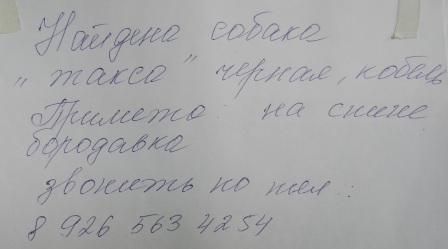 Найдена собака
"такса" черная, кобель
Примета на спине
бородавка
звонить по тел:
8 926 563 4254